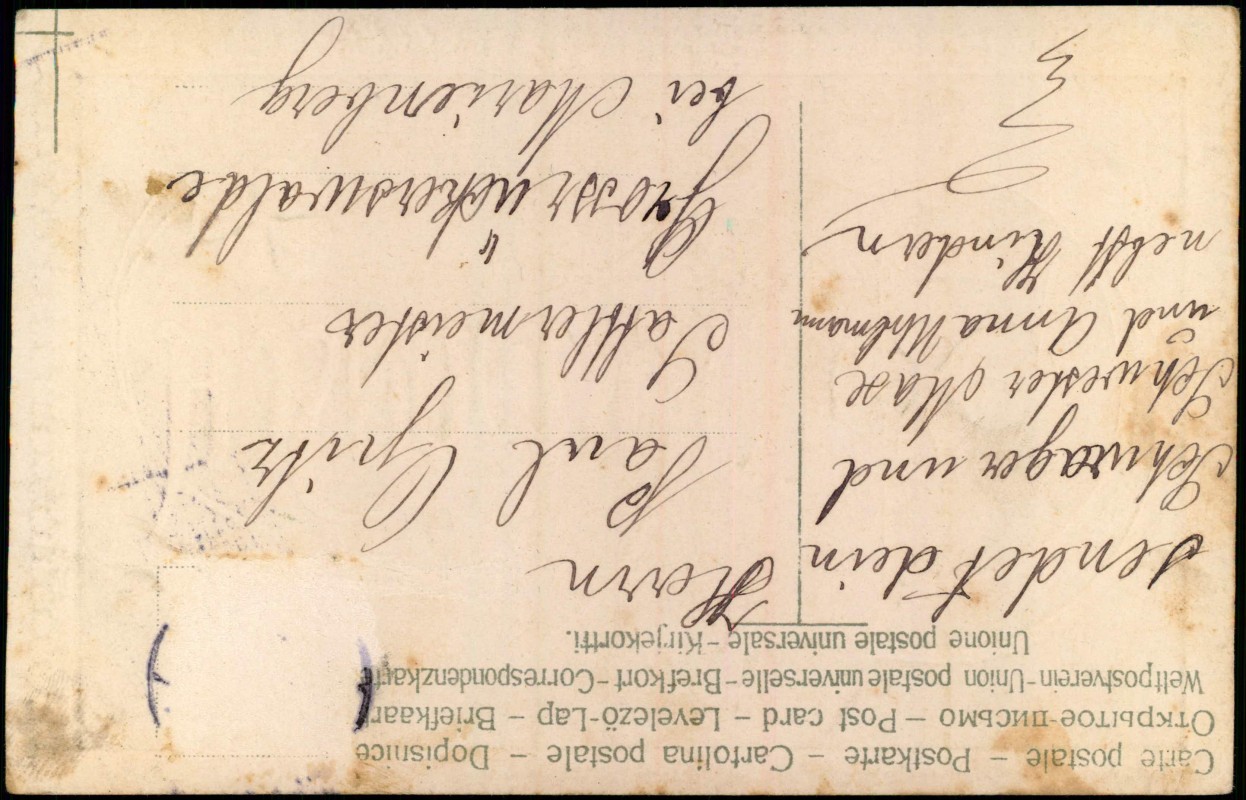 Carte postale – Postkarte – Cartolina postale – Dopisnice
Открытое письмо – Post card – Levelező-Lap – Briefkaart
Weltpostverein-Union postale universelle-Brefkort-Correspondenzkarte
Unione postale universale-Kirjekortti.
sendet dein
Schwager und
Schwester Max
und Anna Uhlmann
nebst Kindern
Herrn
Paul
Sattlermeister
Grossrückerswalde
bei Marienberg